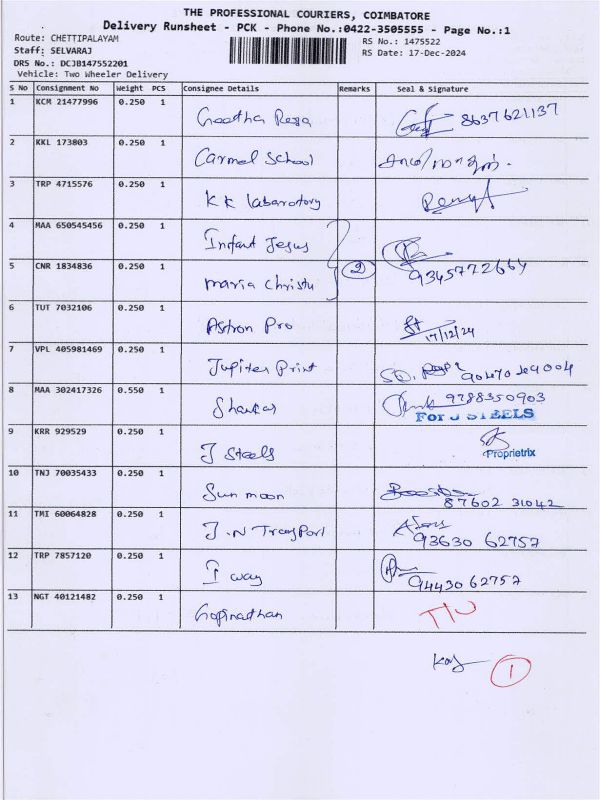 THE PROFESSIONAL COURIERS, COIMBATORE
Delivery Runsheet - PCK - Phone No.:0422-3505555 - Page No.:1
Route: CHETTIPALAYAM
RS No.: 1475522
Staff: SELVARAJ
RS Date: 17-Dec-2024
DRS No.: DCJB147552201
Vehicle: Two Wheeler Delivery
S No Consignment No Weight PCS Consignee Details Remarks Seal & Signature
1 KCM 21477996 0.250 1 Geetha 8637621137
2 KKL 173803 0.250 1 Carmel School
3 TRP 4715576 0.250 1 KK labarotory
4 MAA 650545456 0.250 1 Infant Jesus
5 CNR 1834836 0.250 1 maria christu 2 9345772664
6 TUT 7032106 0.250 1 Astron Pro 17/12/24
7 VPL 405981469 0.250 1 Jupiter Print
8 MAA 302417326 0.550 1 Shankar 9788350903
For J STEELS
9 KRR 929529 0.250 1 J Steels
Proprietrix
10 TNJ 70035433 0.250 1 Sun moon 87602 31042
11 TMI 60064828 0.250 1 J.N Transport 93630 62757
12 TRP 7857120 0.250 1 I way 94430 62757
13 NGT 40121482 0.250 1 Gopinathan
1